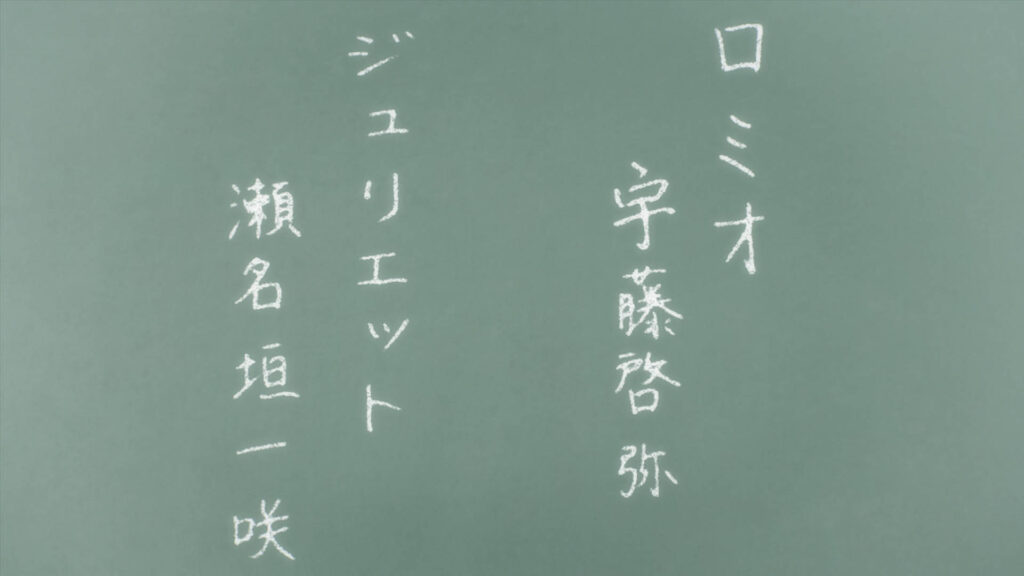 ロミオ
宇藤啓弥
ジュリエット
瀬名垣一咲